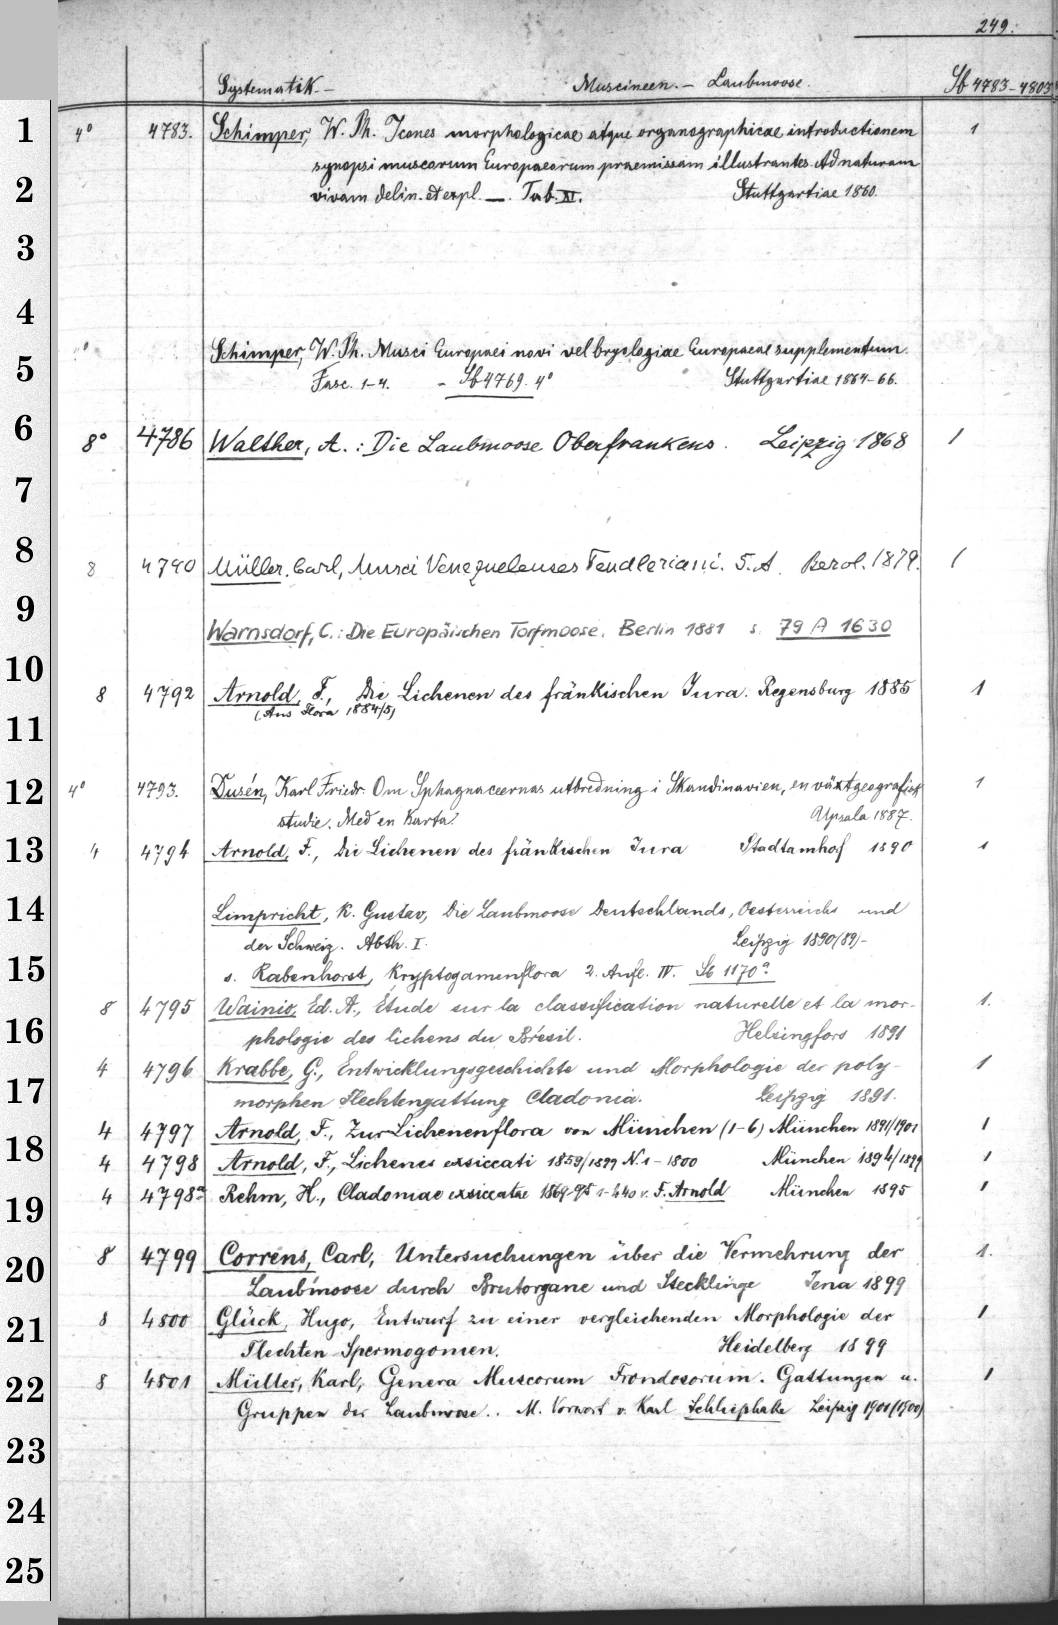 249.
Systematik. — Muscineen. — Laubmoose. Sb 4783-4803
1
4° 4783. Schimper, W. Ph. Icones morphologicae atque organographicae introductionem 1
synopsi muscorum Europaeorum praemissam illustrantes. Ad naturam
2
vivam delin. et expl. —. Tab. XI. Stuttgartiae 1860.
3
4
Schimper, W. Ph. Musci Europaei novi vel bryologiae Europaeae supplementum.
5
Fasc. 1-4. - Sb 4769. 4° Stuttgartiae 1864-66.
6
8° 4786 Walther, A. : Die Laubmoose Oberfrankens. Leipzig 1868 1
7
8
8 4790 Müller, Carl, Musci Venezuelenses Fendleriani. S. A. Berol. 1879. 1
9
Warnsdorf, C. : Die Europäischen Torfmoose. Berlin 1881 s. 79 A 1630
10
8 4792 Arnold, F., Die Lichenen des fränkischen Jura. Regensburg 1885 1
(Aus Flora 1884/5)
11
12
4° 4793. Dusén, Karl Friedr. Om Sphagnaceernas utbredning i Skandinavien, en växtgeografisk 1
studie. Med en Karta. Upsala 1887.
13
4 4794 Arnold, F., Die Lichenen des fränkischen Jura Stadtamhof 1890 1
14
Limpricht, K. Gustav, Die Laubmoose Deutschlands, Oesterreichs und
der Schweiz. Abth. I. Leipzig 1890(89)-
15
s. Rabenhorst, Kryptogamenflora 2. Aufl. IV. Sb 1170a.
8 4795 Wainio, Ed. A., Étude sur la classification naturelle et la mor- 1.
16
phologie des lichens du Brésil. Helsingfors 1891
4 4796 Krabbe, G., Entwicklungsgeschichte und Morphologie der poly- 1
17
morphen Flechtengattung Cladonia. Leipzig 1891.
4 4797 Arnold, F., Zur Lichenenflora von München (1-6) München 1891/1901 1
18
4 4798 Arnold, F., Lichenes exsiccati 1859/1899 N. 1 - 1800 München 1894/1899 1
4 4798a Rehm, H., Cladoniae exsiccatae 1869-95 1-440 v. F. Arnold München 1895 1
19
8 4799 Correns, Carl, Untersuchungen über die Vermehrung der 1.
20
Laubmoose durch Brutorgane und Stecklinge Jena 1899
21
8 4800 Glück, Hugo, Entwurf zu einer vergleichenden Morphologie der 1
Flechten Spermogonien. Heidelberg 1899
22
8 4801 Müller, Karl, Genera Muscorum Frondosorum. Gattungen u. 1
Gruppen der Laubmoose.. M. Vorwort v. Karl Schliephake Leipzig 1901(1900)
23
24
25